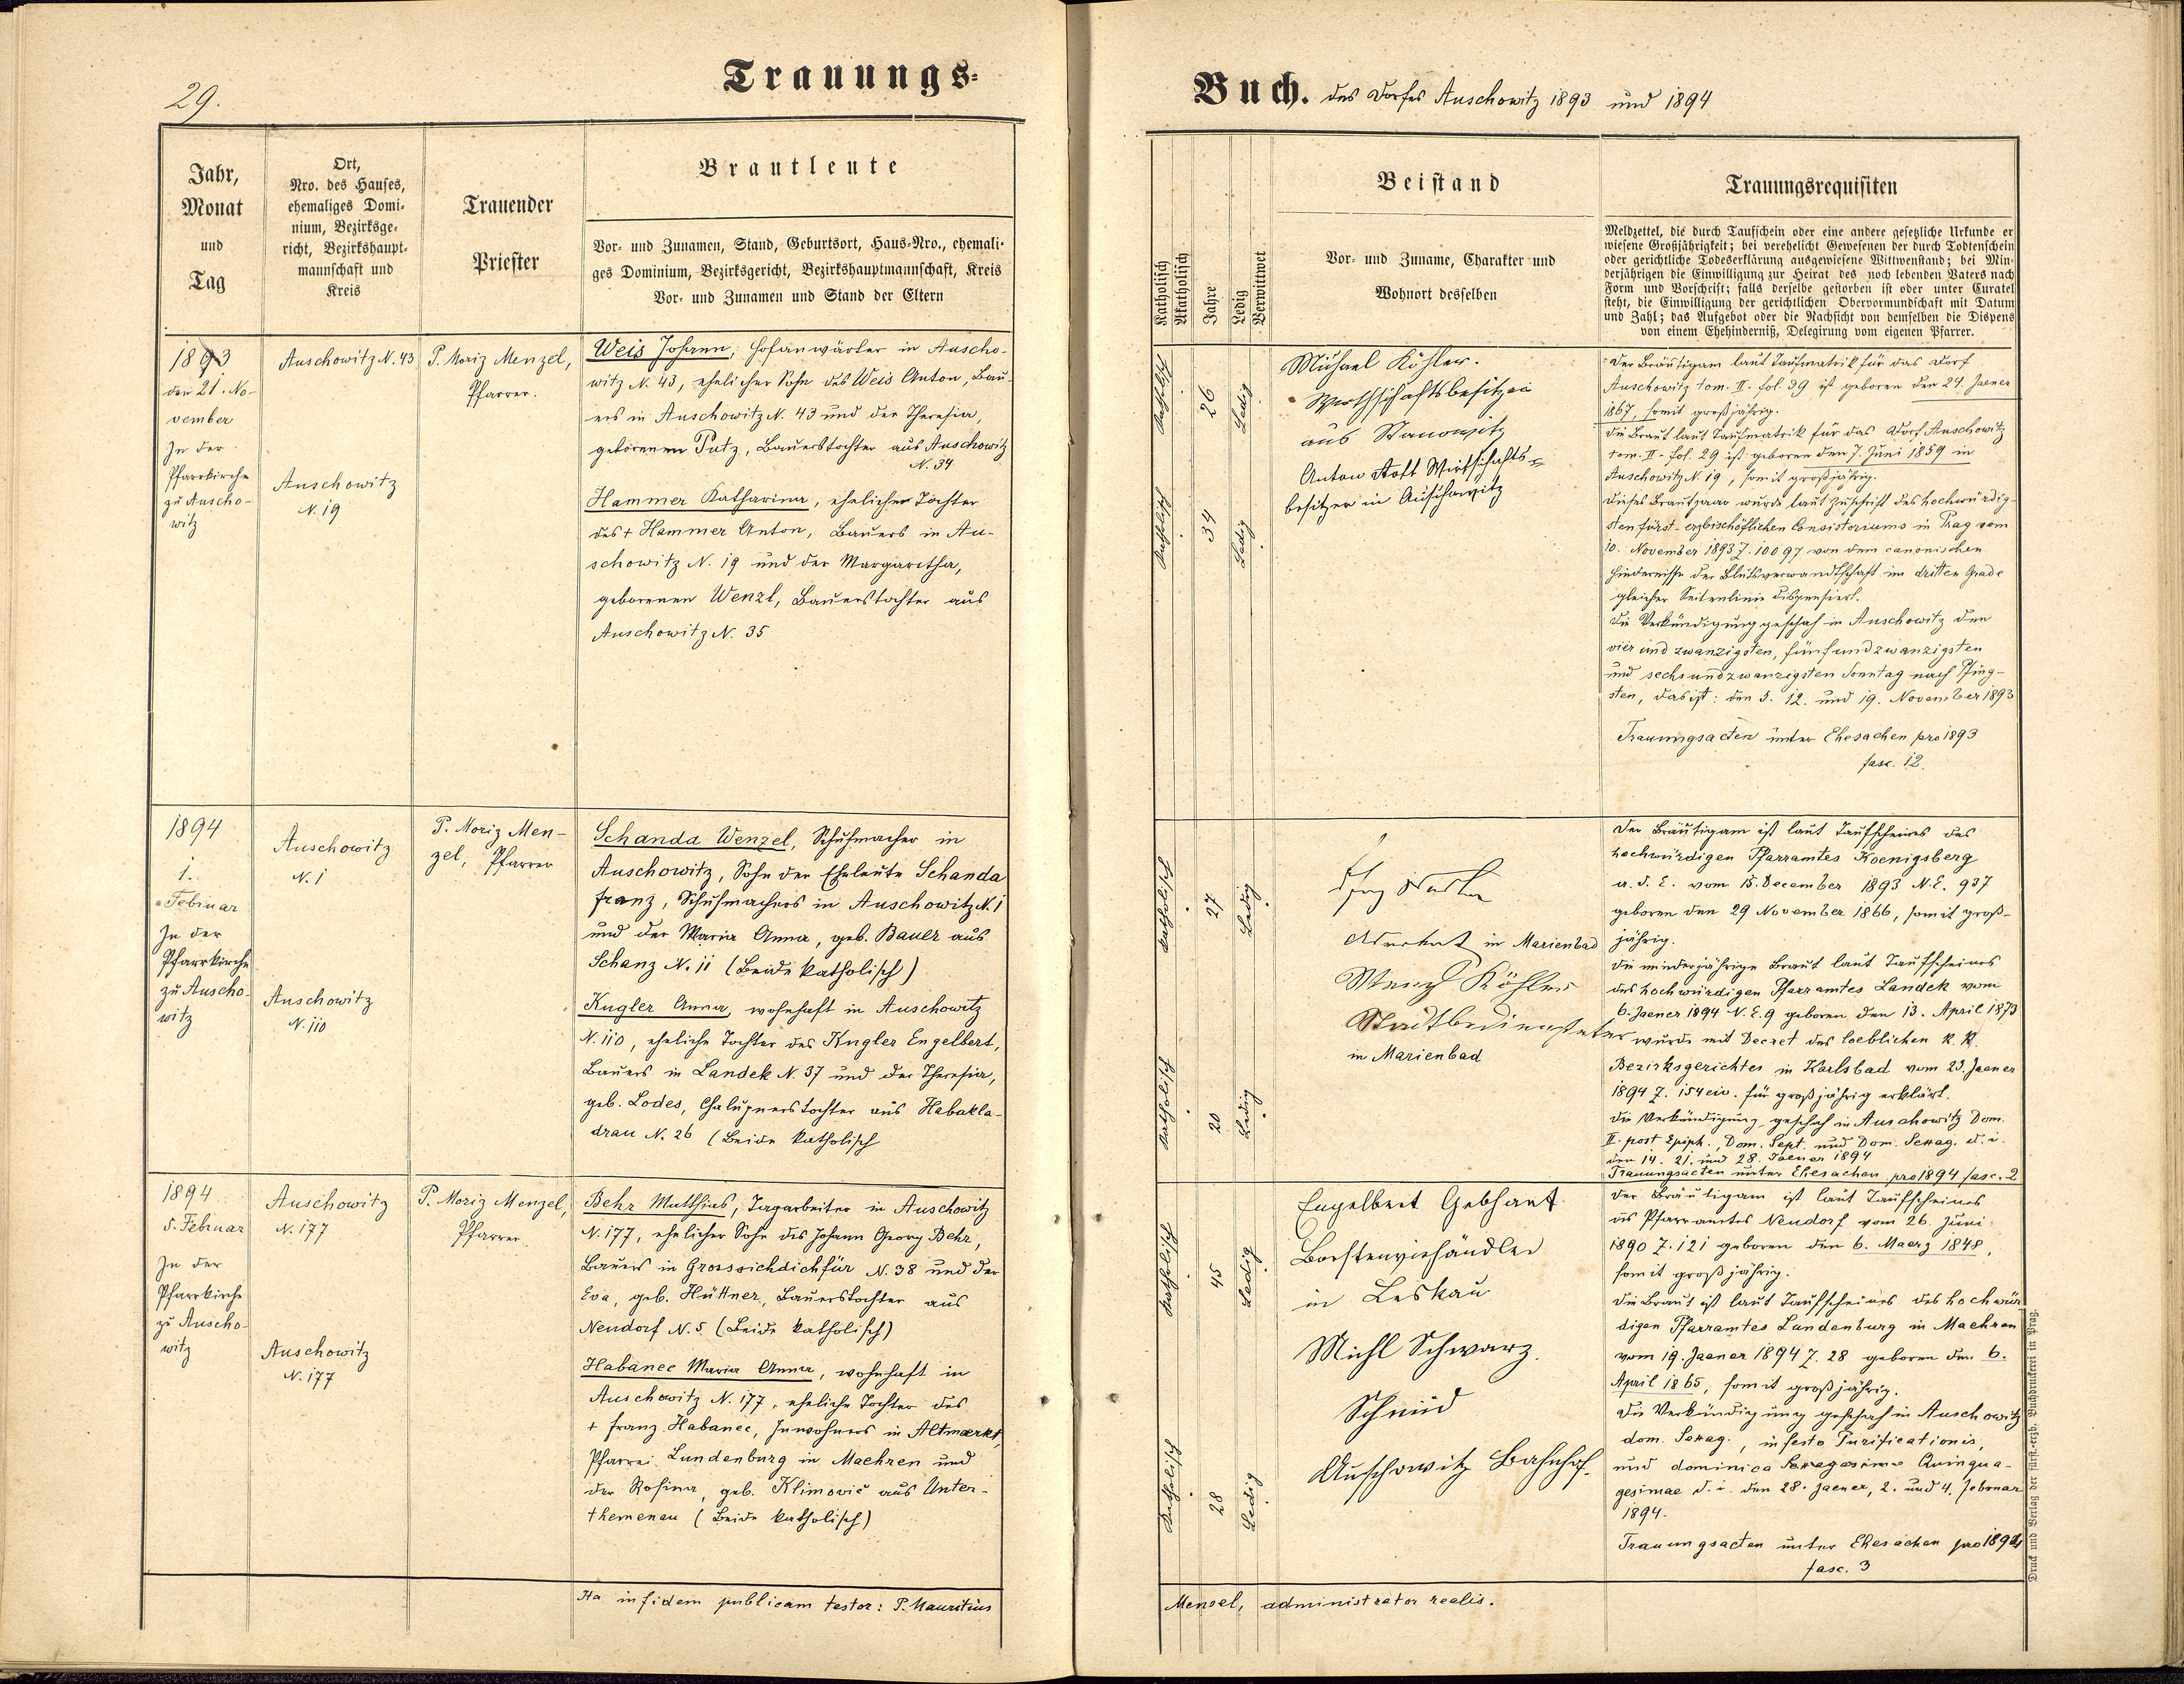 29.
Trauungs-
Jahr,
Monat
und
Tag
Ort,
Nro. des Hauses,
ehemaliges Domi-
nium, Bezirksge-
richt, Bezirkshaupt-
mannschaft und
Kreis
Trauender
Priester
Brautleute
Vor- und Zunamen, Stand, Geburtsort, Haus-Nro., ehemali-
ges Dominium, Bezirksgericht, Bezirkshauptmannschaft, Kreis
Vor- und Zunamen und Stand der Eltern
1893
den 21. No-
vember
In der
Pfarrkirche
zu Auscho-
witz
Auschowitz N. 43
Auschowitz
N. 19
P. Moriz Menzel,
Pfarrer.
Weis Johann, Hofanwärter in Auscho-
witz N. 43, ehelicher Sohn des Weis Anton, Bau-
ers in Auschowitz N. 43 und der Theresia,
geborenen Putz, Bauerstochter aus Auschowitz
N. 34
Hammer Katharina, ehelichen Tochter
des + Hammer Anton, Bauers in Au-
schowitz N. 19 und der Margaretha,
geborenen Wenzl, Bauerstochter aus
Auschowitz N. 35
1894
1.
Februar
In der
Pfarrkirche
zu Auscho-
witz
Auschowitz
N. 1
Auschowitz
N. 110
P. Moriz Men-
zel, Pfarrer
Schanda Wenzel, Schuhmacher in
Auschowitz, Sohn der Eheleute Schanda
Franz, Schuhmachers in Auschowitz N. 1
und der Maria Anna, geb. Bauer aus
Schanz N. 11 (Beide katholisch)
Kugler Anna, wohnhaft in Auschowitz
N. 110, eheliche Tochter des Kugler Engelbert,
Bauers in Landek N. 37 und der Theresia,
geb. Lodes, Chalupnerstochter aus Habakla-
drau N. 26 (Beide katholisch
1894
5. Februar
In der
Pfarrkirche
zu Auscho-
witz
Auschowitz
N. 177
Auschowitz
N. 177
P. Moriz Menzel,
Pfarrer.
Behr Matthias, Tagarbeiter in Auschowitz
N. 177, ehelicher Sohn des Johann Georg Behr,
Bauers in Grosssichdichfür N. 38 und der
Eva, geb. Hüttner, Bauerstochter aus
Neudorf N. 5 (Beide katholisch)
Habanec Maria Anna, wohnhaft in
Auschowitz N. 177, eheliche Tochter des
+ Franz Habanec, Inwohners in Altmarkt,
Pfarrei Lundenburg in Maehren und
der Rosina, geb. Klimovič aus Unter-
themenau (Beide katholisch)
Ita in fidem publicam testor: P. Mauritius
Buch. des Dorfes Auschowitz 1893 und 1894
Katholisch
Akatholisch
Jahre
Ledig
Verwittwet
Beistand
Vor- und Zuname, Charakter und
Wohnort desselben
Trauungsrequisiten
Meldzettel, die durch Taufschein oder eine andere gesetzliche Urkunde er
wiesene Großjährigkeit; bei verehelicht Gewesenen der durch Todtenschein
oder gerichtliche Todeserklärung ausgewiesene Wittwenstand; bei Min-
derjährigen die Einwilligung zur Heirat des noch lebenden Vaters nach
Form und Vorschrift; falls derselbe gestorben ist oder unter Curatel
steht, die Einwilligung der gerichtlichen Obervormundschaft mit Datum
und Zahl; das Aufgebot oder die Nachsicht von demselben die Dispens
von einem Ehehinderniß, Delegirung vom eigenen Pfarrer.
Katholisch
26
Ledig
Katholisch
34
Ledig
Michael Köhler.
Wirthschaftsbesitzer
aus Stanowitz
Anton Stoll Wirtschafts-
besitzer in Auschowitz
Der Bräutigam laut Taufmatrik für das Dorf
Auschowitz tom. II. fol. 39 ist geboren den 24. Jaener
1867, somit großjährig.
Die Braut laut Taufmatrik für das Dorf Auschowitz
tom. II. fol. 29 ist geboren den 7. Juni 1859 in
Auschowitz N. 19, somit großjährig.
Dieses Brautpaar wurde laut Zuschrift des hochwürdig-
sten fürst-erzbischöflichen Consistoriums in Prag vom
10. November 1893 Z. 10097 von dem canonischen
Hindernisse der Blutsverwandtschaft im dritten Grade
gleicher Seitenlinie dispensiert.
Die Verkündigung geschah in Auschowitz den
vier und zwanzigsten, fünfundzwanzigsten
und sechsundzwanzigsten Sonntag nach Pfing-
sten, das ist: den 5. 12. und 19. November 1893
Trauungsacten unter Ehesachen pro 1893
fasc. 12.
Katholisch
27
Ledig
Katholisch
20
Ledig
Advokat in Marienbad
Köhler
Stadtbediensteter
in Marienbad
Der Bräutigam ist laut Taufscheines des
hochwürdigen Pfarramtes Koenigsberg
a. d. E. vom 15. December 1893 N.E. 937
geboren den 29 November 1866, somit groß-
jährig.
Die minderjährige Braut laut Taufscheines
des hochwürdigen Pfarramtes Landek vom
6. Jaener 1894 N.E. 9 geboren den 13. April 1873
wurde mit Decret des loeblichen K. K.
Bezirksgerichtes in Karlsbad vom 23. Jaener
1894 Z. 154 civ. für großjährig erklärt.
Die Verkündigung geschah in Auschowitz Dom.
II. post Epiph., Dom. Sept. und Dom. Sexag. d. i.
den 14. 21. und 28. Jaener 1894
Trauungsacten unter Ehesachen pro 1894 fasc. 2
Katholisch
45
Ledig
Katholisch
28
Ledig
Engelbert Gebhart
Borstenviehändler
in Leskau
Michl Schwarz
Schmid
Auschowitz Bahnhof.
Der Bräutigam ist laut Taufscheines
des Pfarramtes Neudorf vom 26. Juni
1890 Z. 121 geboren den 6. Maerz 1848,
somit großjährig.
Die Braut ist laut Taufscheines des hochwür
digen Pfarramtes Lundenburg in Maehren
vom 19. Jaener 1894 Z. 28 geboren den 6.
April 1865, somit großjährig.
Die Verkündigung geschah in Auschowitz
dom. Sexag., in festo Purificationis,
und dominica Quinqua-
gesimae d. i. den 28. Jaener, 2. und 4. Februar
1894.
Trauungsacten unter Ehesachen pro 1894
fasc. 3
Menzel, administrator realis.
Druck und Verlag der fürst.-erzb. Buchdruckerei in Prag.